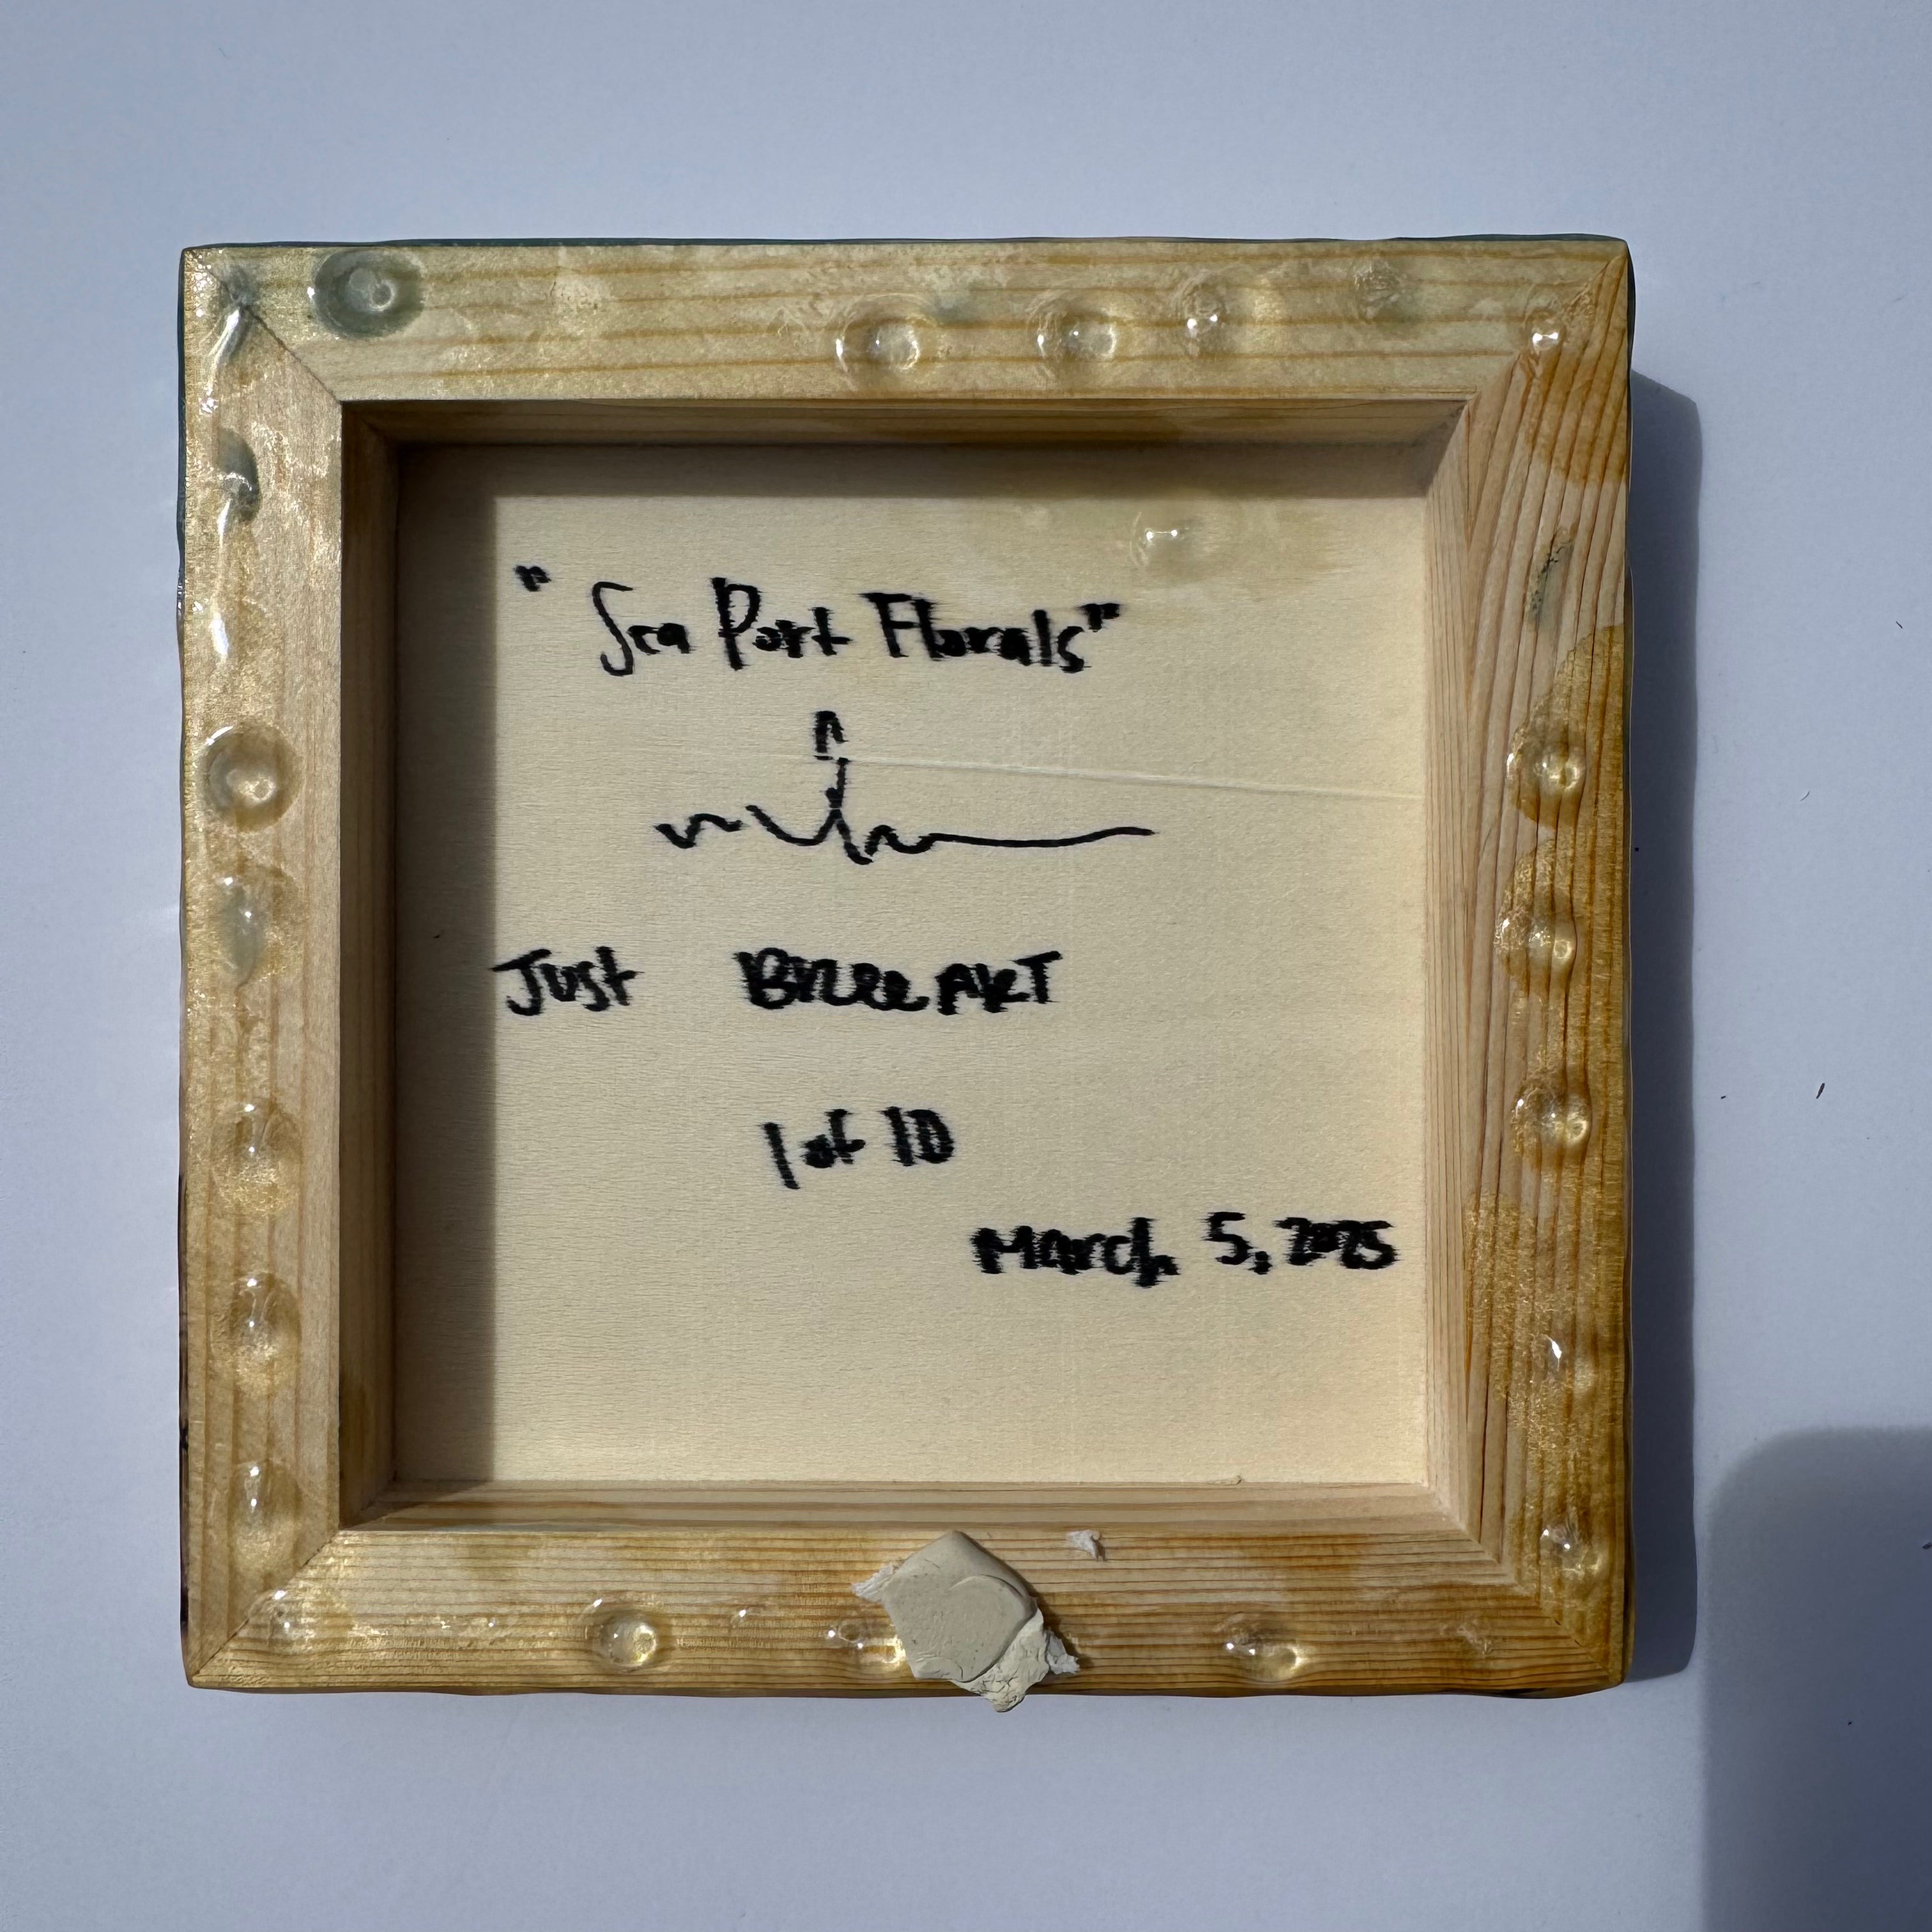 "Sea Port Florals"
Just Bree ART
1 of 10
March 5, 2025